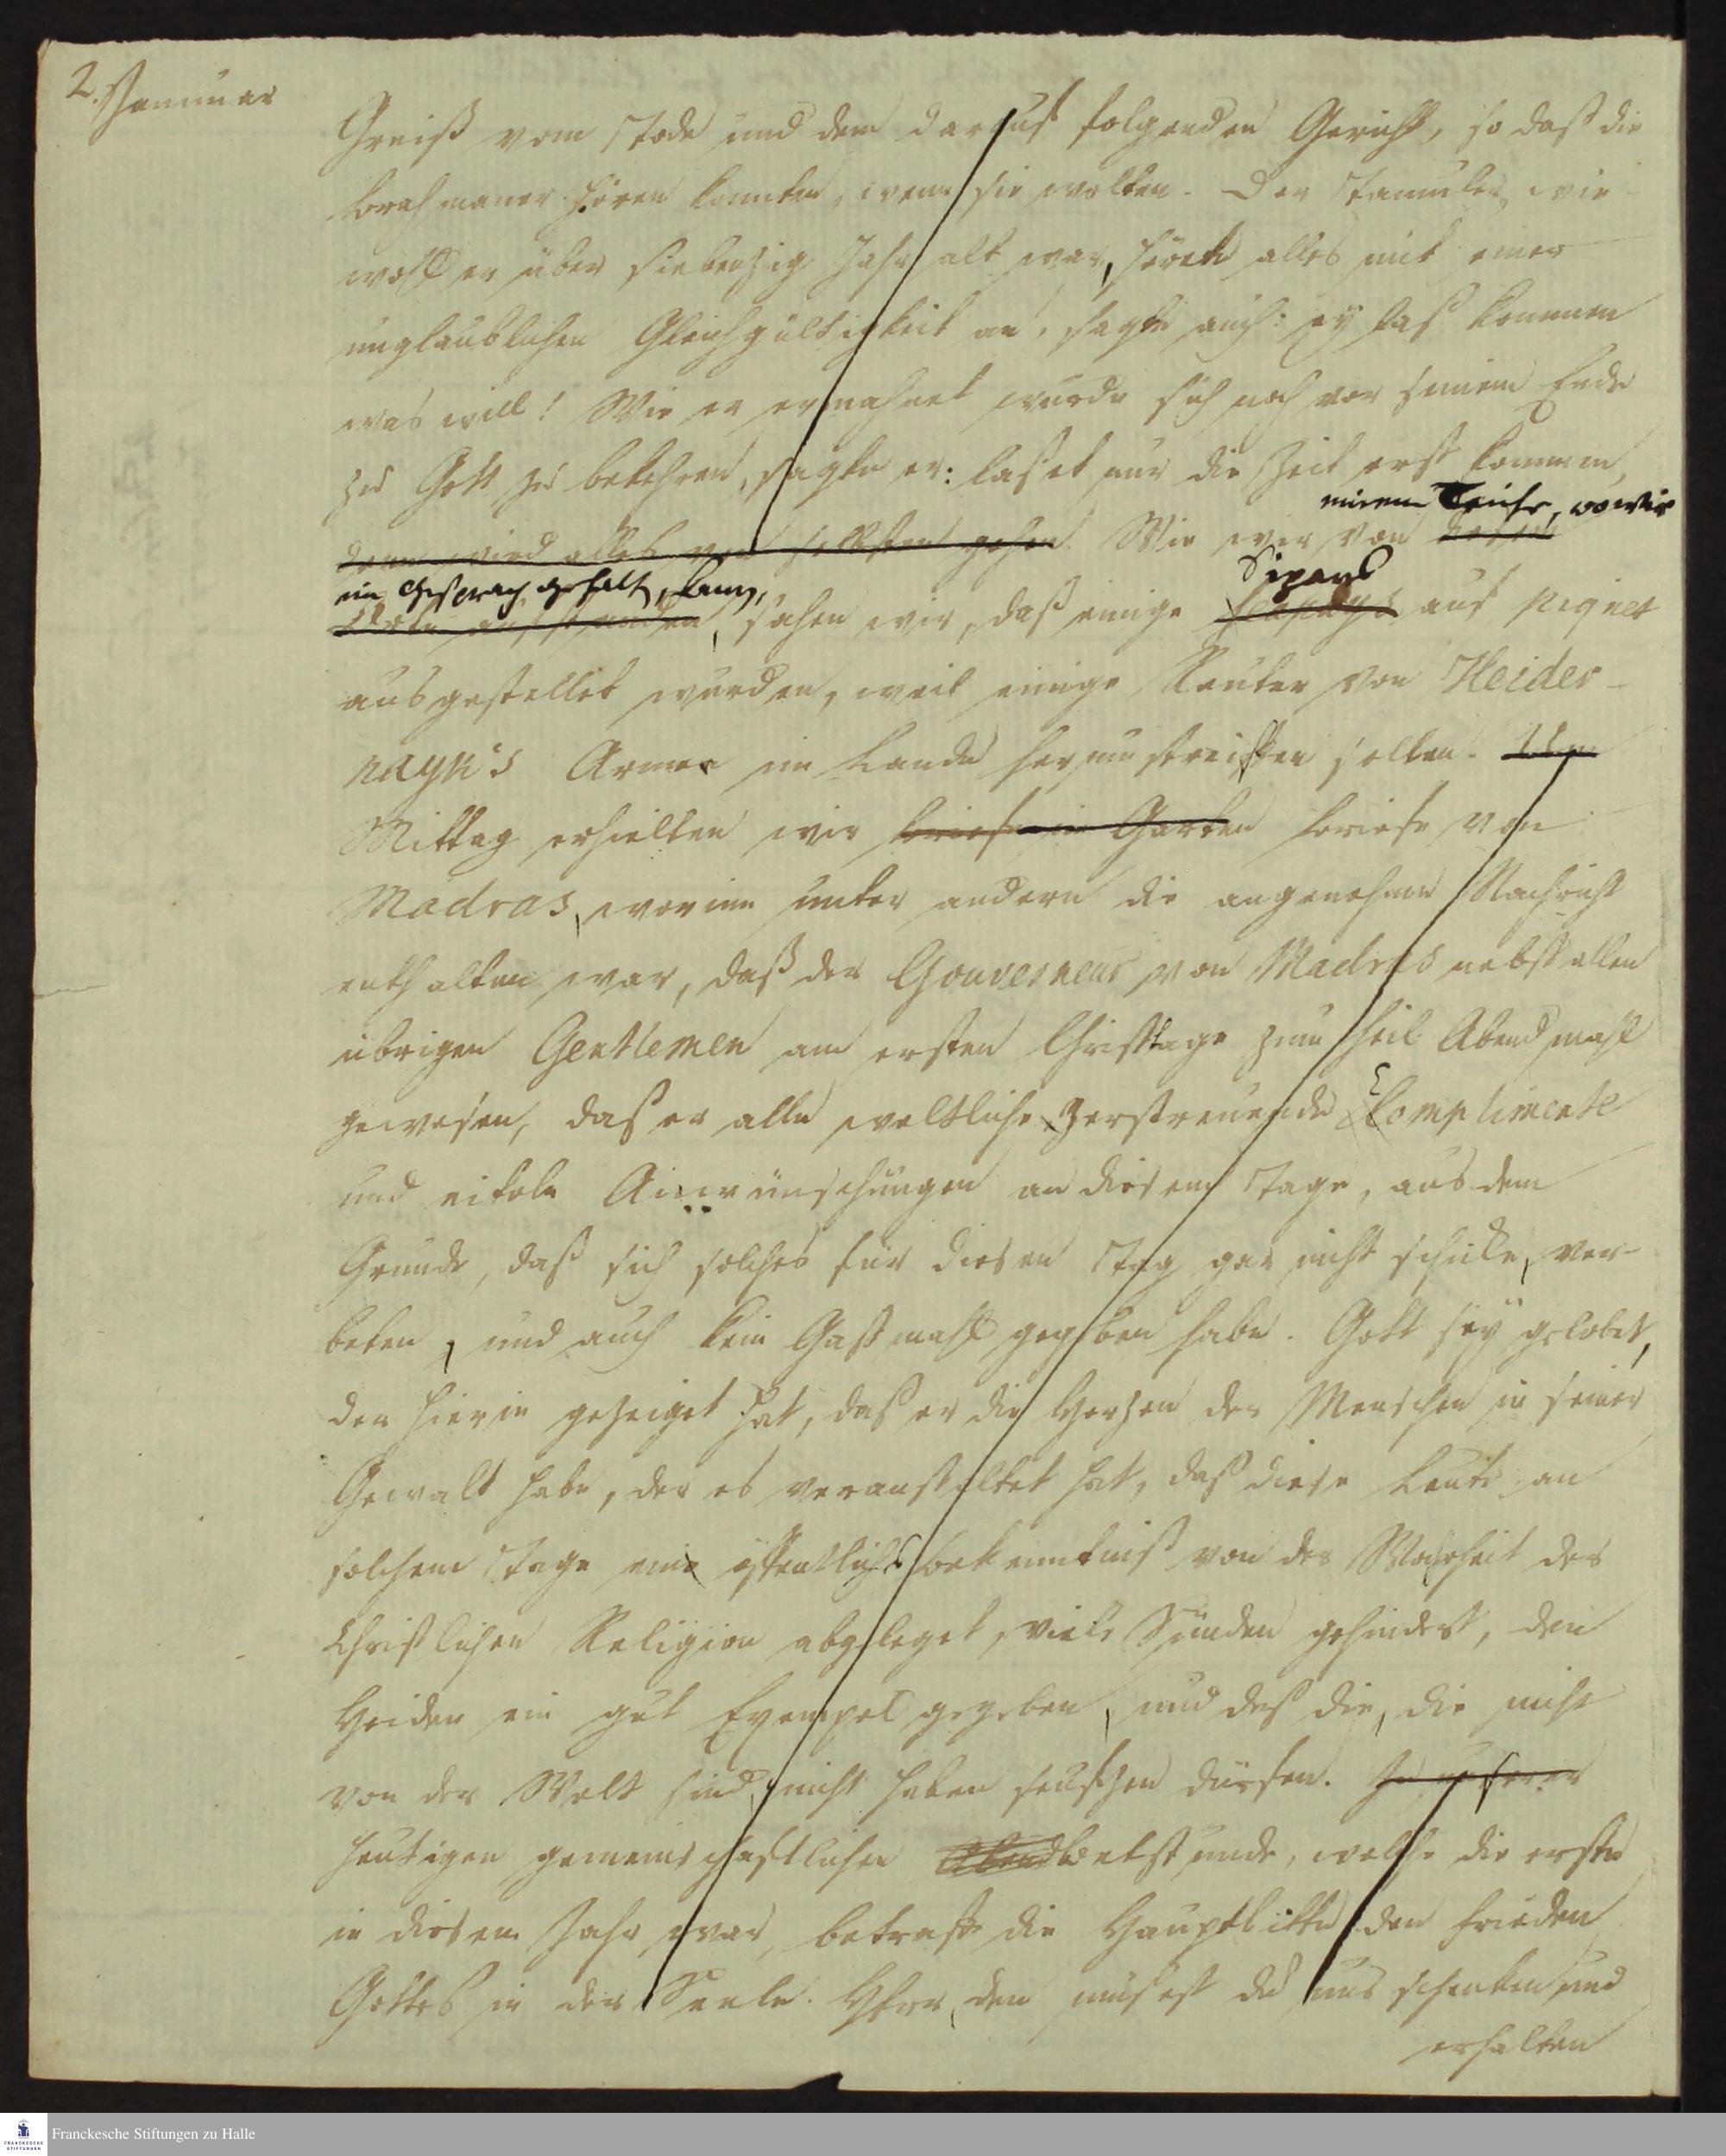 2. Januar
Greiß vom Tode und dem darauf folgenden Gericht, so daß die
brahmaner hören konnten, wenn sie wolten. Der Tamuler, wie
wohl er über siebenzig Jahr alt war, hörte alles mit einer
unglaublichen Gleichgültigkeit an, sagte auch: ey laß kommen
was will! Wie er ermahnet wurde sich noch vor seinem Ende
zu Gott zu bekehren, sagte er: laßet nur die Zeit erst kommen,
einem Teiche, wo wir
denn wird alles von selbsten gehen. Wie wir von
ein Gespräch gehalt, kam,
Sipays
sahen wir, daß einige auf Piquet
ausgestellet wurden, weil einige Reuter von Heider-
nayk's Armee im Lande herum streiffen sollen. Um
Mittag erhielten wir briefe im Garten briefe von
Madras, worinn unter andern die angenehme Nachricht
enthalten war, daß der Gouverneur von Madras nebst allen
übrigen Gentlemen am ersten Christtage zum heil. Abendmahl
gewesen, daß er alle weltliche zerstreuende Complimente
und eitele Anwünschungen an diesem Tage, aus dem
Grunde, daß sich solches für diesen Tag gar nicht schicke, ver-
beten, und auch kein Gastmahl gegeben habe. Gott sey gelobet,
der hierin gezeiget hat, daß er die Herzen der Menschen in seiner
Gewalt habe, der es veranstaltet hat, daß diese Leute an
solchem Tage ein öffentliches bekenntniß von der Wahrheit der
Christlichen Religion abgeleget, viele Sünden gehindert, den
Heiden ein gut Exempel gegeben, und daß die, die nicht
von der Welt sind, nicht haben seufzen dürfen. In unserer
heutigen gemeinschaftlichen Abendbetstunde, welche die erste
in diesem Jahr war, betraff die Hauptbitte den Frieden
Gottes in der Seele. Herr, den müßest du uns schenken und
erhalten
Franckesche Stiftungen zu Halle
FRANCKESCHE
STIFTUNGEN